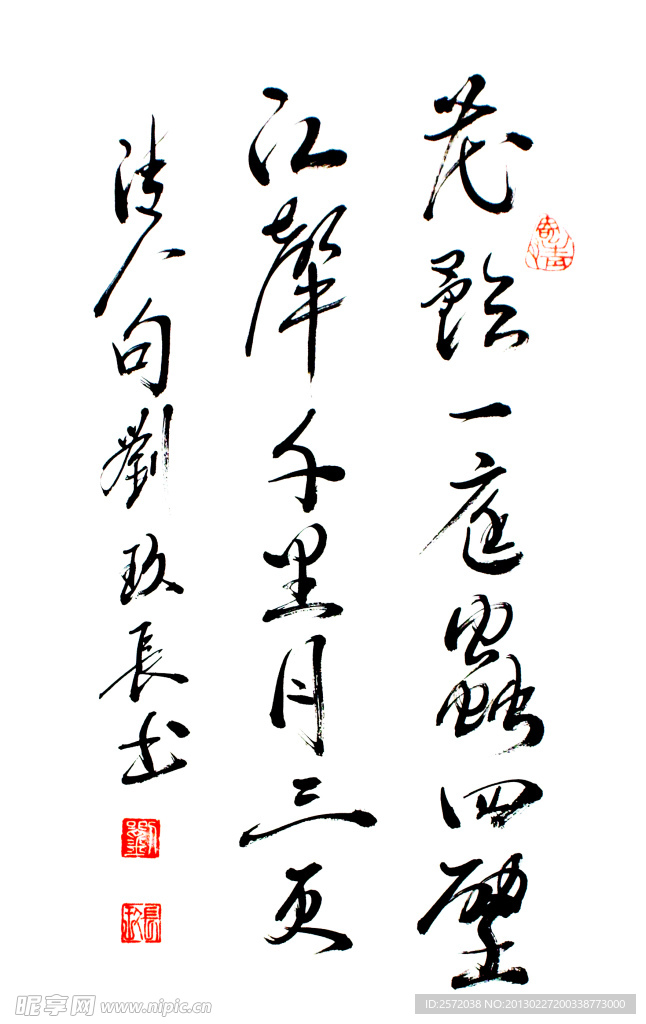 花影一庭蟲四壁
江聲千里月三更
清人句劉玖長书
昵享网 www.nipic.cn
ID:2572038 NO:20130227200338773000